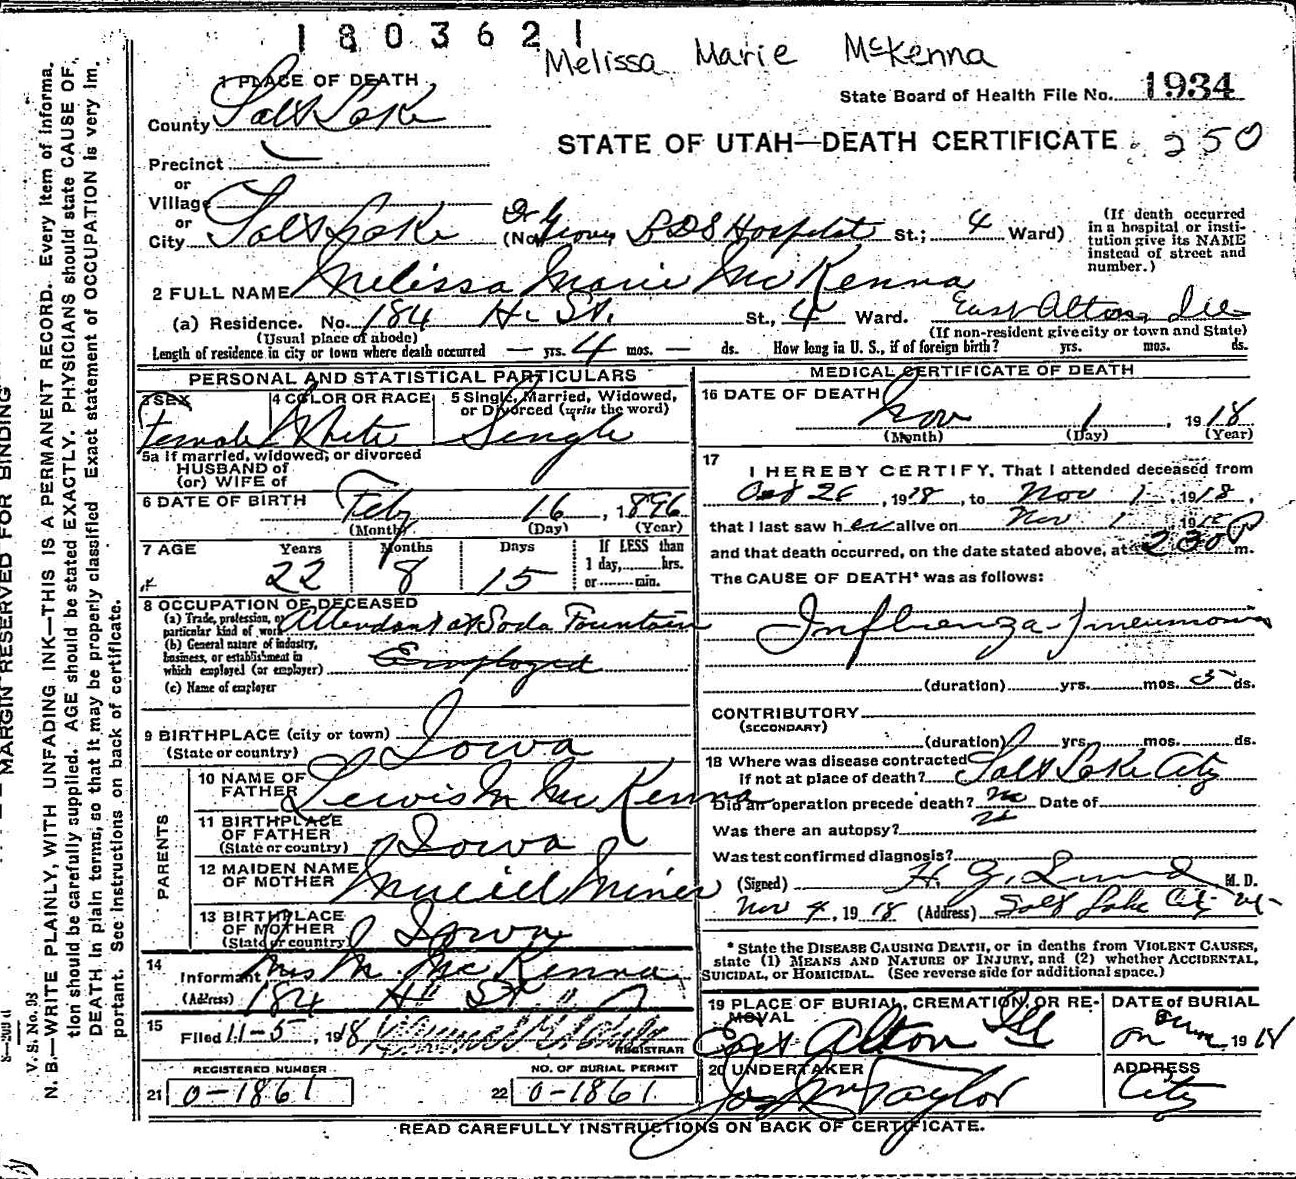 1803621
Melissa Marie McKenna
1 PLACE OF DEATH
State Board of Health File No. 1934
County Salt Lake
STATE OF UTAH—DEATH CERTIFICATE. 250
Precinct
or
Village
or
City Salt Lake (No. Dr Groves LDS Hospital St.; 4 Ward)
(If death occurred in a hospital or insti-
tution give its NAME
instead of street and
number.)
2 FULL NAME Melissa Marie McKenna
(a) Residence. No. 184 H. St. St., 4 Ward. East Alton, Ill
(Usual place of abode) (If non-resident give city or town and State)
Length of residence in city or town where death occurred — yrs. 4 mos. — ds. How long in U. S., if of foreign birth? yrs. mos. ds.
PERSONAL AND STATISTICAL PARTICULARS
3 SEX Female
4 COLOR OR RACE White
5 Single, Married, Widowed,
or Divorced (write the word) Single
5a If married, widowed, or divorced
HUSBAND of
(or) WIFE of
6 DATE OF BIRTH Feby 16, 1896
(Month) (Day) (Year)
7 AGE Years 22 Months 8 Days 15
If LESS than
1 day, hrs.
or min.
8 OCCUPATION OF DECEASED
(a) Trade, profession, or
particular kind of work Attendant at Soda Fountain
(b) General nature of industry,
business, or establishment in
which employed (or employer) Employed
(c) Name of employer
9 BIRTHPLACE (city or town)
(State or country) Iowa
PARENTS
10 NAME OF
FATHER Lewis M McKenna
11 BIRTHPLACE
OF FATHER
(State or country) Iowa
12 MAIDEN NAME
OF MOTHER Miner
13 BIRTHPLACE
OF MOTHER
(State or country) Iowa
14 Informant Mrs M. McKenna
(Address) 184 H St
15 Filed 11-5, 1918
REGISTRAR
REGISTERED NUMBER
21 0-1861
NO. OF BURIAL PERMIT
22 0-1861
MEDICAL CERTIFICATE OF DEATH
16 DATE OF DEATH
Nov 1, 1918
(Month) (Day) (Year)
17 I HEREBY CERTIFY, That I attended deceased from
Oct 26, 1918, to Nov 1, 1918,
that I last saw her alive on Nov 1 1918
and that death occurred, on the date stated above, at 230 P m.
The CAUSE OF DEATH* was as follows:
Influenza-Pneumonia
(duration) yrs. mos. 5 ds.
CONTRIBUTORY
(SECONDARY)
(duration) yrs. mos. ds.
18 Where was disease contracted
if not at place of death? Salt Lake City
Did an operation precede death? no Date of
Was there an autopsy? no
Was test confirmed diagnosis?
(Signed) H. G. Lund M. D.
Nov 4, 1918 (Address) Salt Lake City Ut
* State the DISEASE CAUSING DEATH, or in deaths from VIOLENT CAUSES,
state (1) MEANS AND NATURE OF INJURY, and (2) whether ACCIDENTAL,
SUICIDAL, or HOMICIDAL. (See reverse side for additional space.)
19 PLACE OF BURIAL, CREMATION, OR RE-
MOVAL East Alton Ill
DATE OF BURIAL
1918
20 UNDERTAKER Jos Wm Taylor
ADDRESS City
READ CAREFULLY INSTRUCTIONS ON BACK OF CERTIFICATE.
MARGIN RESERVED FOR BINDING
N. B.—WRITE PLAINLY, WITH UNFADING INK—THIS IS A PERMANENT RECORD. Every item of informa-
tion should be carefully supplied. AGE should be stated EXACTLY. PHYSICIANS should state CAUSE OF
DEATH in plain terms, so that it may be properly classified. Exact statement of OCCUPATION is very im-
portant. See Instructions on back of certificate.
V. S. No. 98